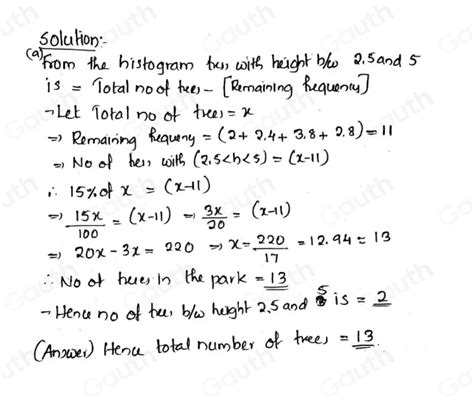 Solution:-
(a) From the histogram trees with height b/w 2.5 and 5
is = Total no of trees - [Remaining frequency]
→ Let Total no of trees = x
⇒ Remaining frequency = (2 + 2.4 + 3.8 + 2.8) = 11
⇒ No of trees with (2.5<h<5) = (x-11)
∴ 15% of x = (x-11)
⇒ 15x/100 = (x-11) ⇒ 3x/20 = (x-11)
⇒ 20x - 3x = 220 ⇒ x = 220/17 = 12.94 ≈ 13
∴ No of trees in the park = 13
- Hence no of trees b/w height 2.5 and 5 is = 2
(Answer) Hence total number of trees = 13.
Gauth